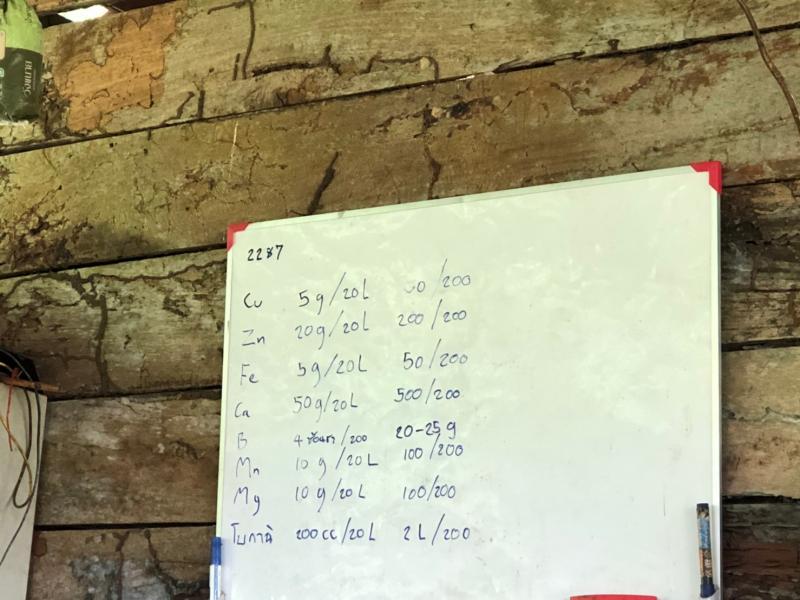 2287
Cu 5g/20L 50/200
Zn 20g/20L 200/200
Fe 5g/20L 50/200
Ca 50g/20L 500/200
B 4 ช้อนชา/200 20-25g
Mn 10g/20L 100/200
Mg 10g/20L 100/200
200cc/20L 2L/200